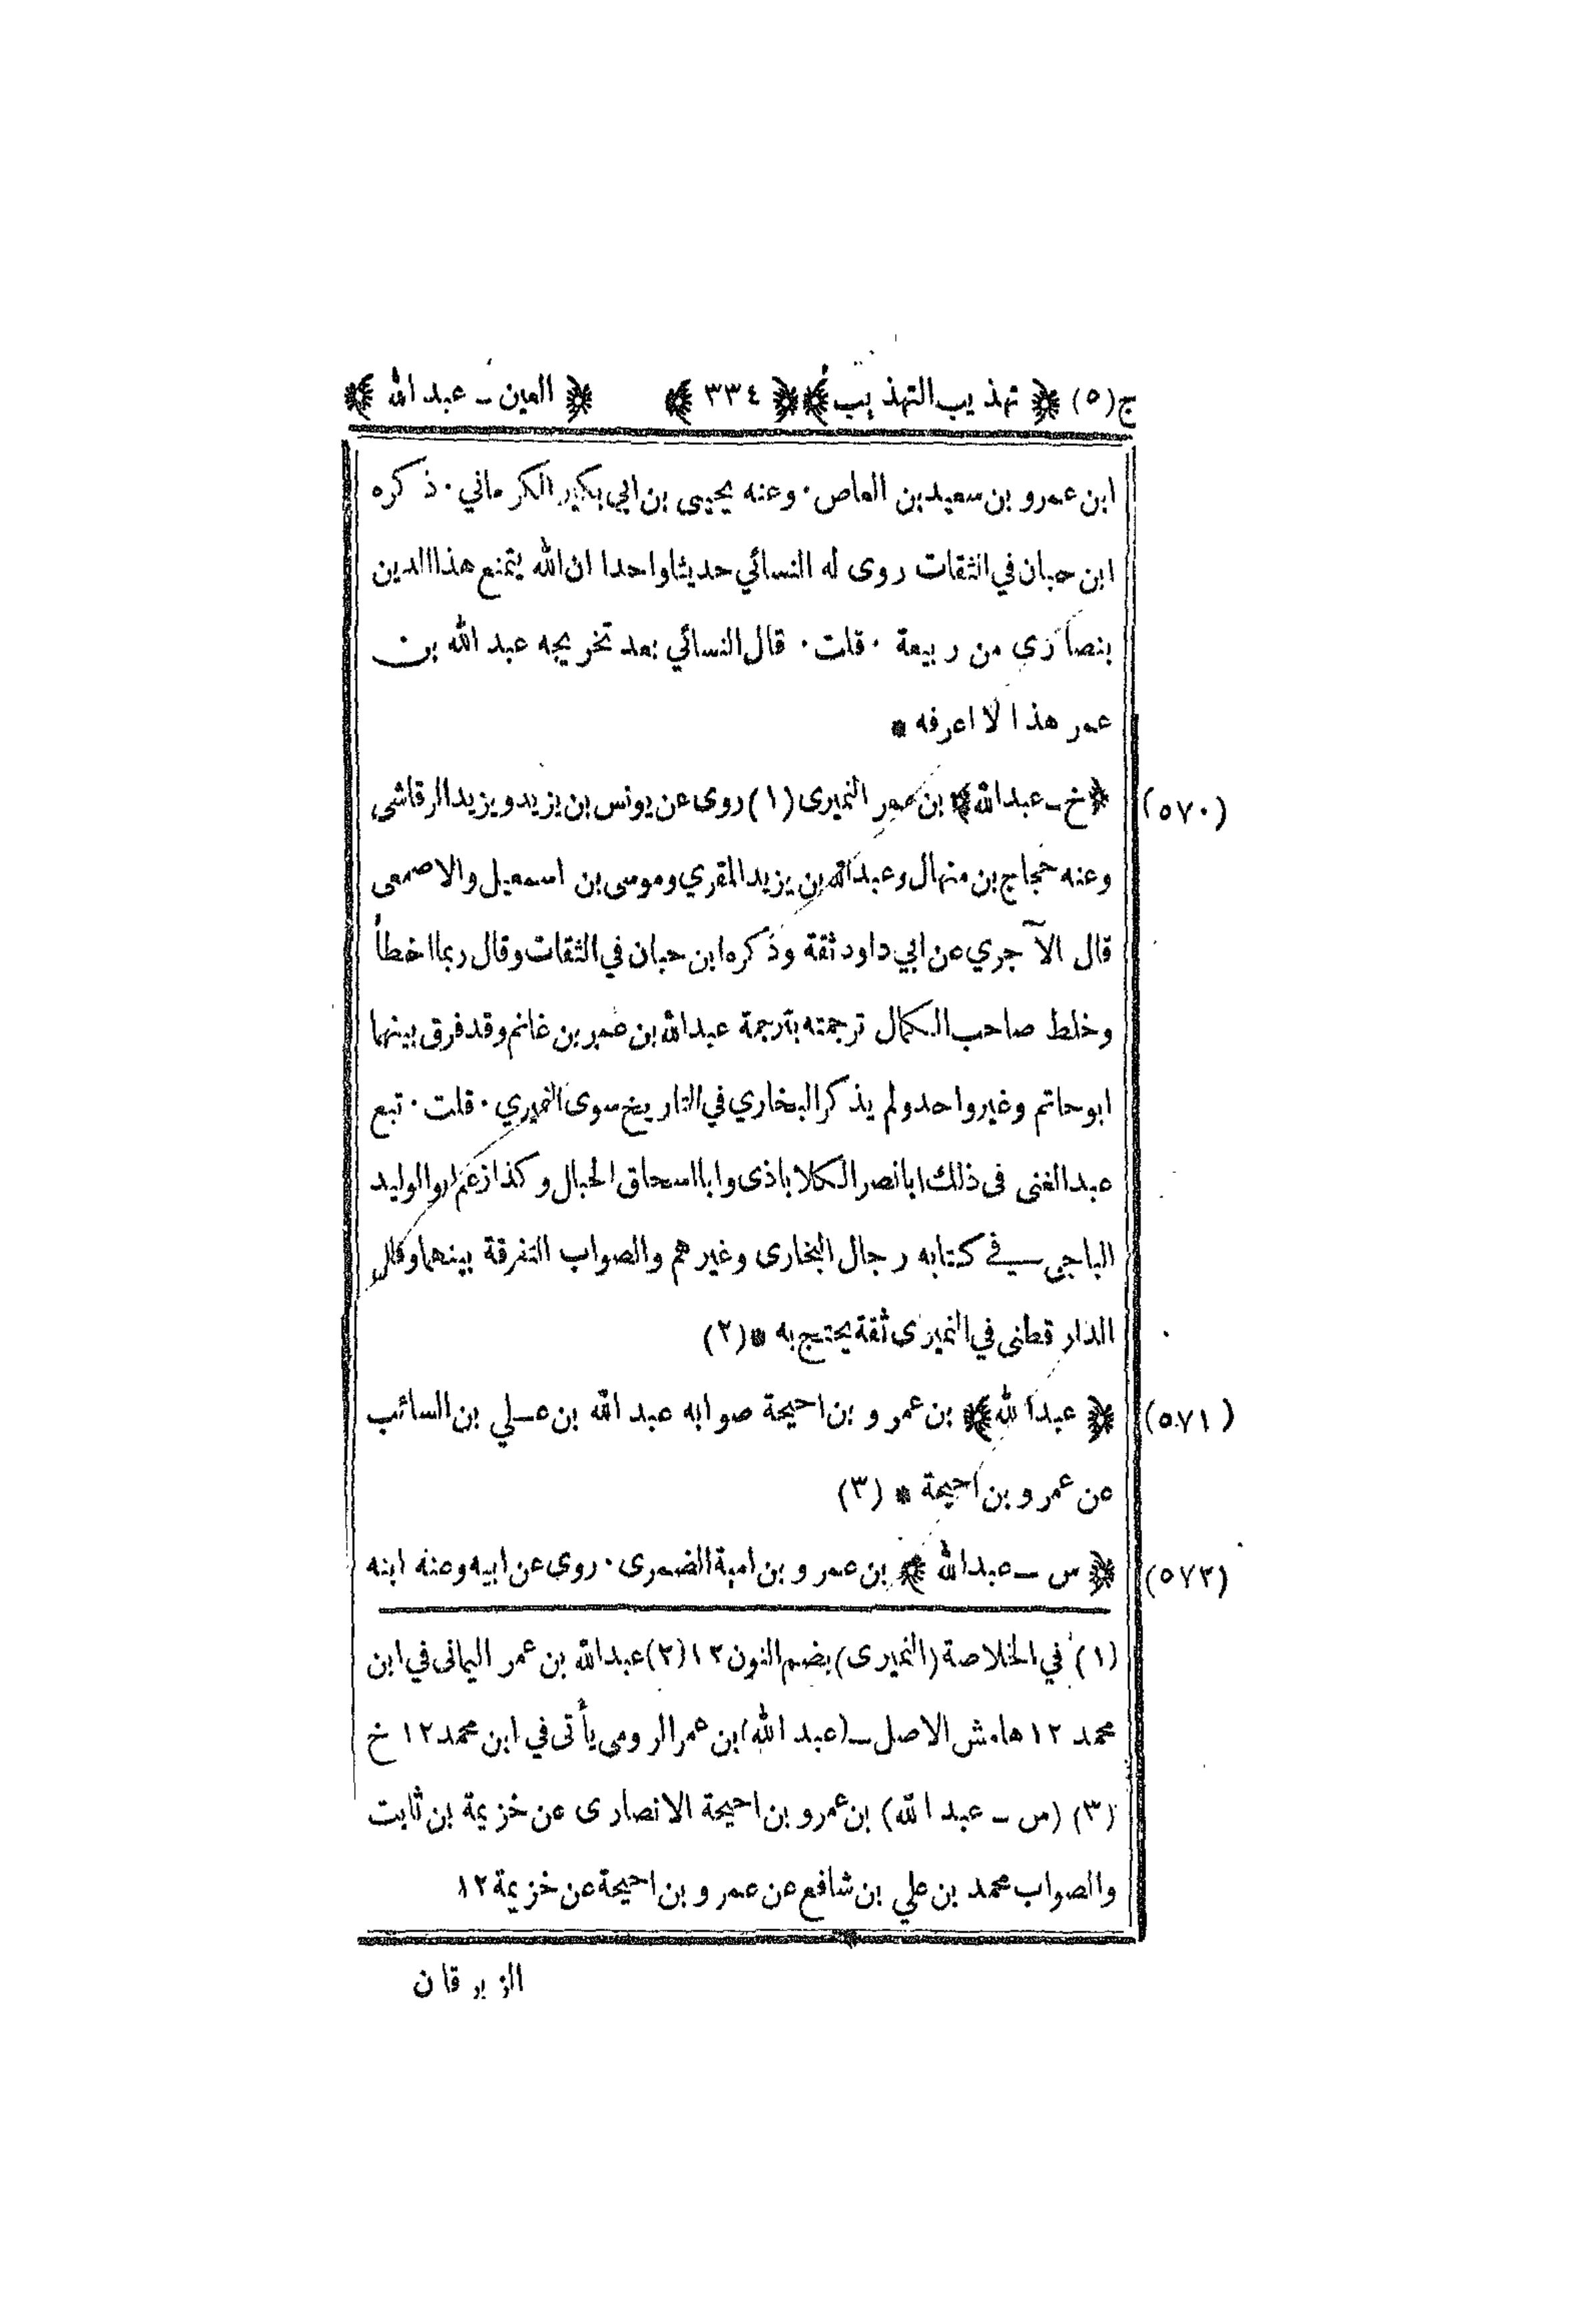 ج(٥) ﴿ تهذيب التهذيب ﴾ ﴿ ٣٣٤ ﴾ ﴿ العين ـ عبد الله ﴾
ابن عمرو بن سعيد بن العاص · وعنه يحيى بن ابي بكير الكرماني · ذكره
ابن حبان في الثقات روى له النسائي حديثا واحدا ان الله يتمنع هذا الدين
بنصارى من ربيعة · قلت · قال النسائي بعد تخريجه عبد الله بن
عمر هذا لا اعرفه *
(٥٧٠) ﴿ خ ـ عبد الله ﴾ بن عمر النميرى (١) روى عن يونس بن يزيد ويزيد الرقاشى
وعنه حجاج بن منهال وعبد الله بن يزيد المقري وموسى بن اسمعيل والاصمعى
قال الآجري عن ابي داود ثقة وذكره ابن حبان في الثقات وقال ربما اخطأ
وخلط صاحب الكمال ترجمته بترجمة عبد الله بن عمر بن غانم وقد فرق بينهما
ابو حاتم وغير واحد ولم يذكر البخاري في التاريخ سوى النميري · قلت · تبع
عبد الغنى فى ذلك ابا نصر الكلاباذى وابا اسحاق الحبال وكذا زعم ابو الوليد
الباجى في كتابه رجال البخارى وغيرهم والصواب التفرقة بينهما وقال
الدار قطنى في النميرى ثقة يحتج به * (٢)
(٥٧١) ﴿ عبد الله ﴾ بن عمرو بن احيحة صوابه عبد الله بن علي بن السائب
عن عمرو بن احيحة * (٣)
(٥٧٢) ﴿ س ـ عبد الله ﴾ بن عمرو بن امية الضمرى · روى عن ابيه وعنه ابنه
(١) في الخلاصة (النميرى) بضم النون ١٢ (٢) عبد الله بن عمر اليمانى في ابن
محمد ١٢ هامش الاصل ـ (عبد الله) بن عمر الرومى يأتى في ابن محمد ١٢ خ
(٣) (س ـ عبد الله) بن عمرو بن احيحة الانصارى عن خزيمة بن ثابت
والصواب محمد بن علي بن شافع عن عمرو بن احيحة عن خزيمة ١٢
الزبرقان